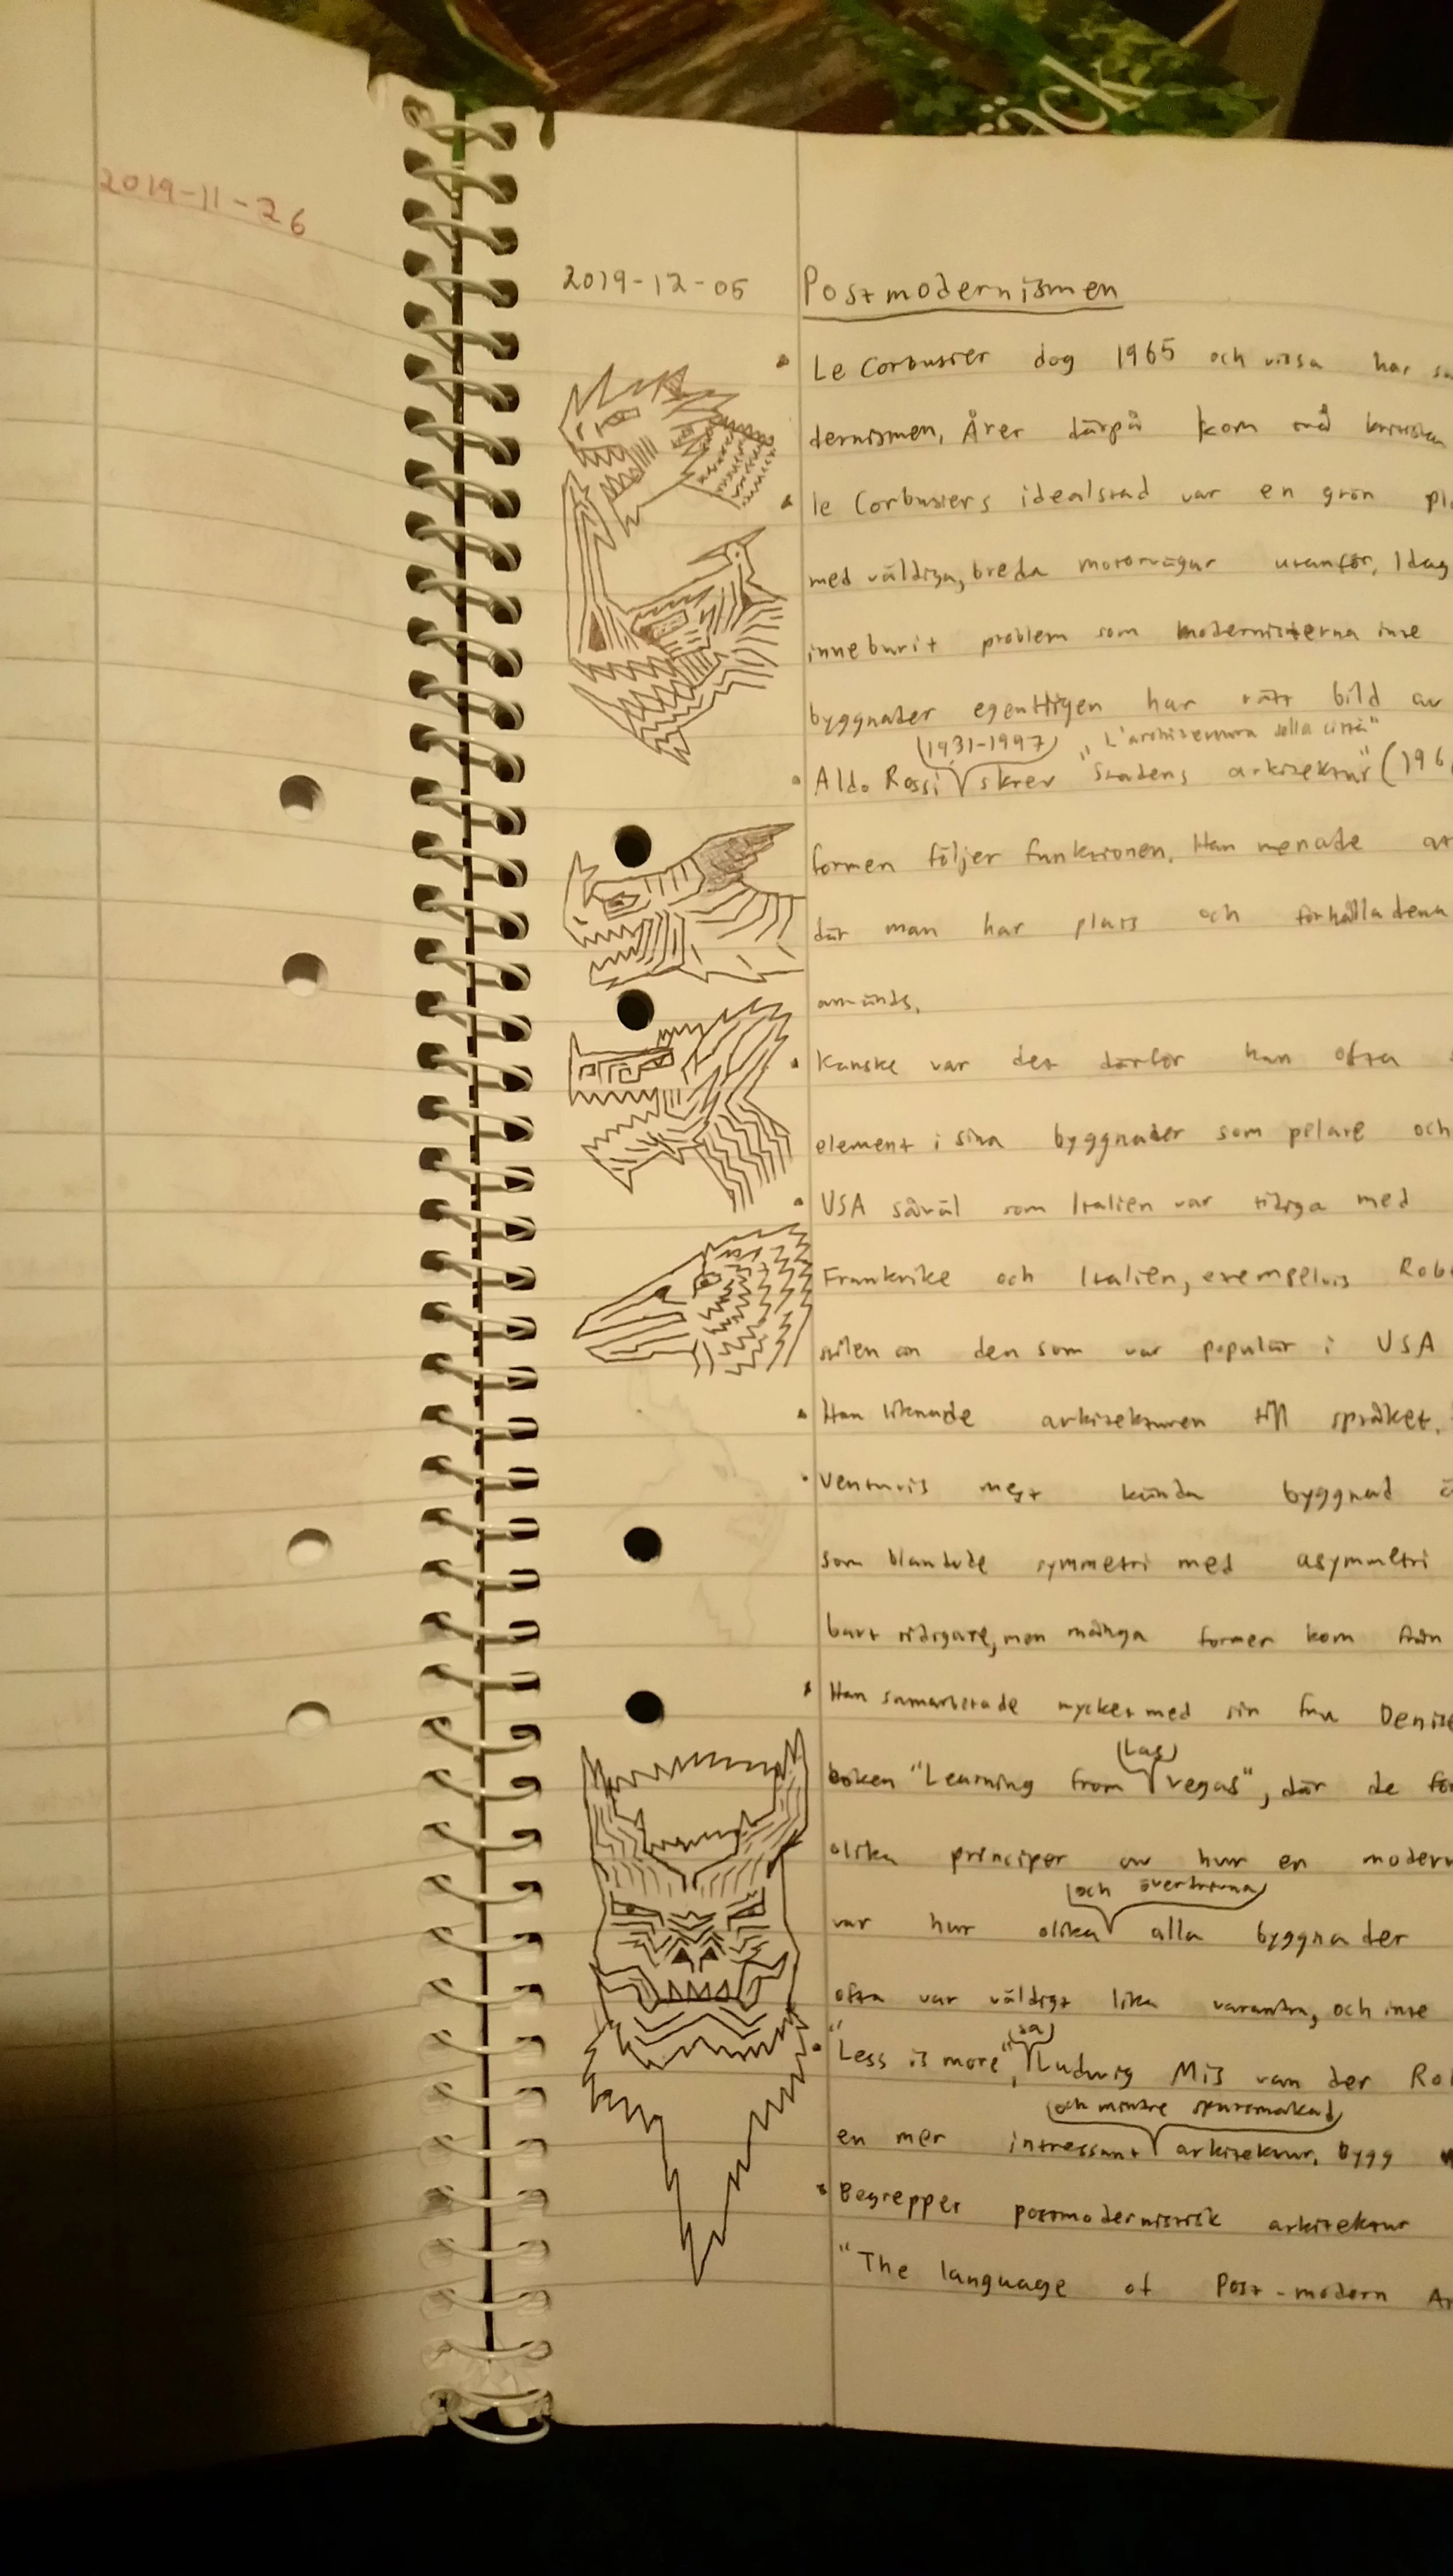 äck
2019-11-26
2019-12-05
Postmodernismen
Le Corbusier dog 1965 och vissa har
dernismen, Året därpå kom två
le Corbusiers idealstad var en grön
med väldiga, breda motorvägar utanför, Idag
inneburit problem som modernisterna inte
byggnader egentligen har rätt bild av
(1931-1997) "L'architettura della città"
Aldo Rossi skrev "Stadens arkitektur" (196
formen följer funktionen. Han menade att
där man har plats och förhålla denna
används.
Kanske var det därför han ofta
element i sina byggnader som pelare och
USA såväl som Italien var tidiga med
Frankrike och Italien, exempelvis Rob
stilen än den som var populär i USA
Han liknade arkitekturen till språket.
Venturis mest kända byggnad
som blandade symmetri med asymmetri
bart tidigare, men många former kom från
Han samarbetade mycket med sin fru Denise
(Las)
boken "Learning from vegas", där de för
olika principer av hur en modern
(och överdrivna)
var hur olika alla byggnader
ofta var väldigt lika varandra, och inte
(sa)
"Less is more", Ludwig Mis van der Ro
(och mindre sparsmakad)
en mer intressant arkitektur, bygg
Begreppet postmodernistisk arkitektur
"The language of Post-modern Ar